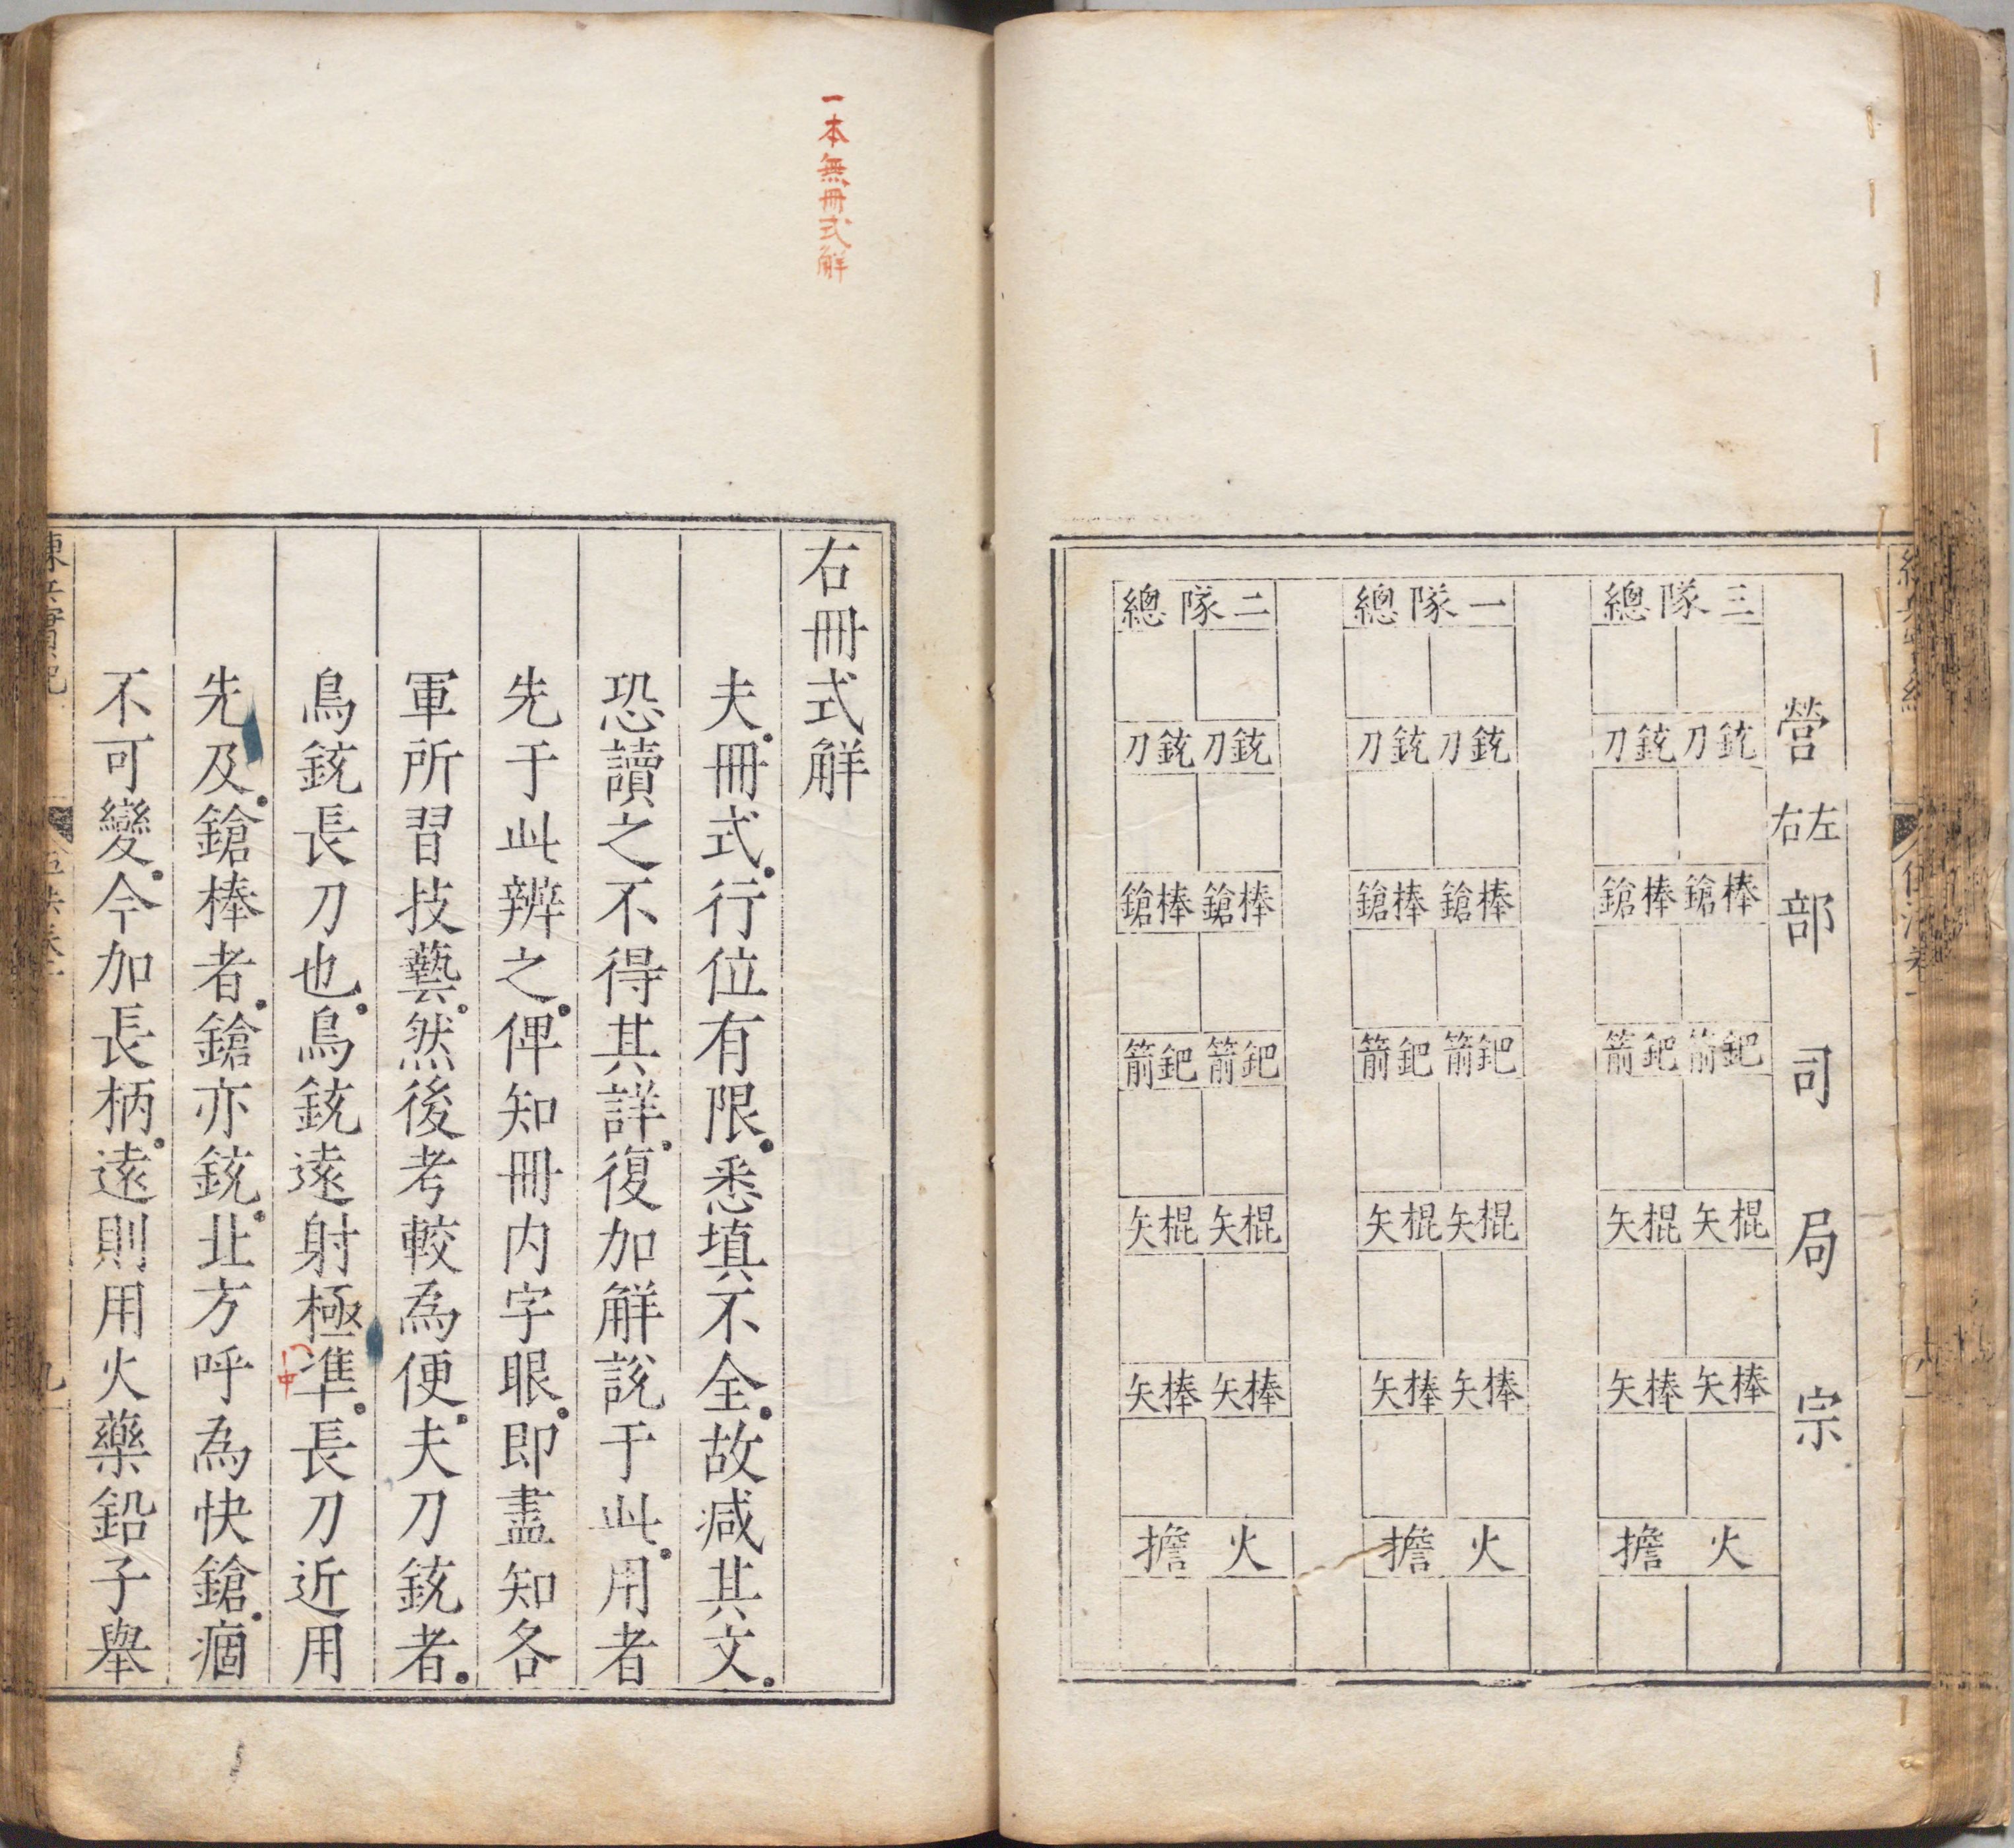 營 左右 部 司 局 宗
三隊總
銃刀銃刀
棒鎗棒鎗
鈀箭鈀箭
棍矢棍矢
棒矢棒矢
火擔
一隊總
銃刀銃刀
棒鎗棒鎗
鈀箭鈀箭
棍矢棍矢
棒矢棒矢
火擔
二隊總
銃刀銃刀
棒鎗棒鎗
鈀箭鈀箭
棍矢棍矢
棒矢棒矢
火擔
一本無冊式觧
右冊式觧
夫冊式行位有限悉填不全故减其文
恐讀之不得其詳復加觧說于此用者
先于此辨之俾知冊内字眼即盡知各
軍所習技藝然後考較為便夫刀銃者
鳥銃長刀也鳥銃遠射極準長刀近用
中
先及鎗棒者鎗亦銃北方呼為快鎗痼
不可變今加長柄遠則用火藥鉛子舉